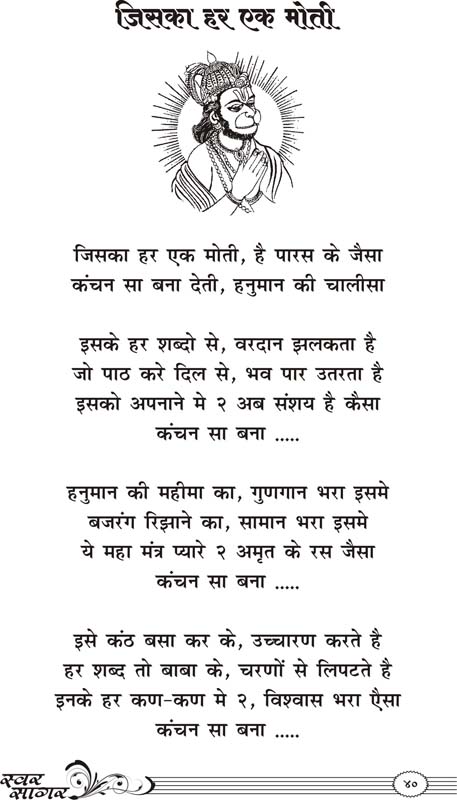 जिसका हर एक मोती
जिसका हर एक मोती, है पारस के जैसा
कंचन सा बना देती, हनुमान की चालीसा
इसके हर शब्दो से, वरदान झलकता है
जो पाठ करे दिल से, भव पार उतरता है
इसको अपनाने मे २ अब संशय है कैसा
कंचन सा बना .....
हनुमान की महीमा का, गुणगान भरा इसमे
बजरंग रिझाने का, सामान भरा इसमे
ये महा मंत्र प्यारे २ अमृत के रस जैसा
कंचन सा बना .....
इसे कंठ बसा कर के, उच्चारण करते है
हर शब्द तो बाबा के, चरणों से लिपटते है
इनके हर कण-कण मे २, विश्वास भरा ऐसा
कंचन सा बना .....
स्वर
सागर
४०